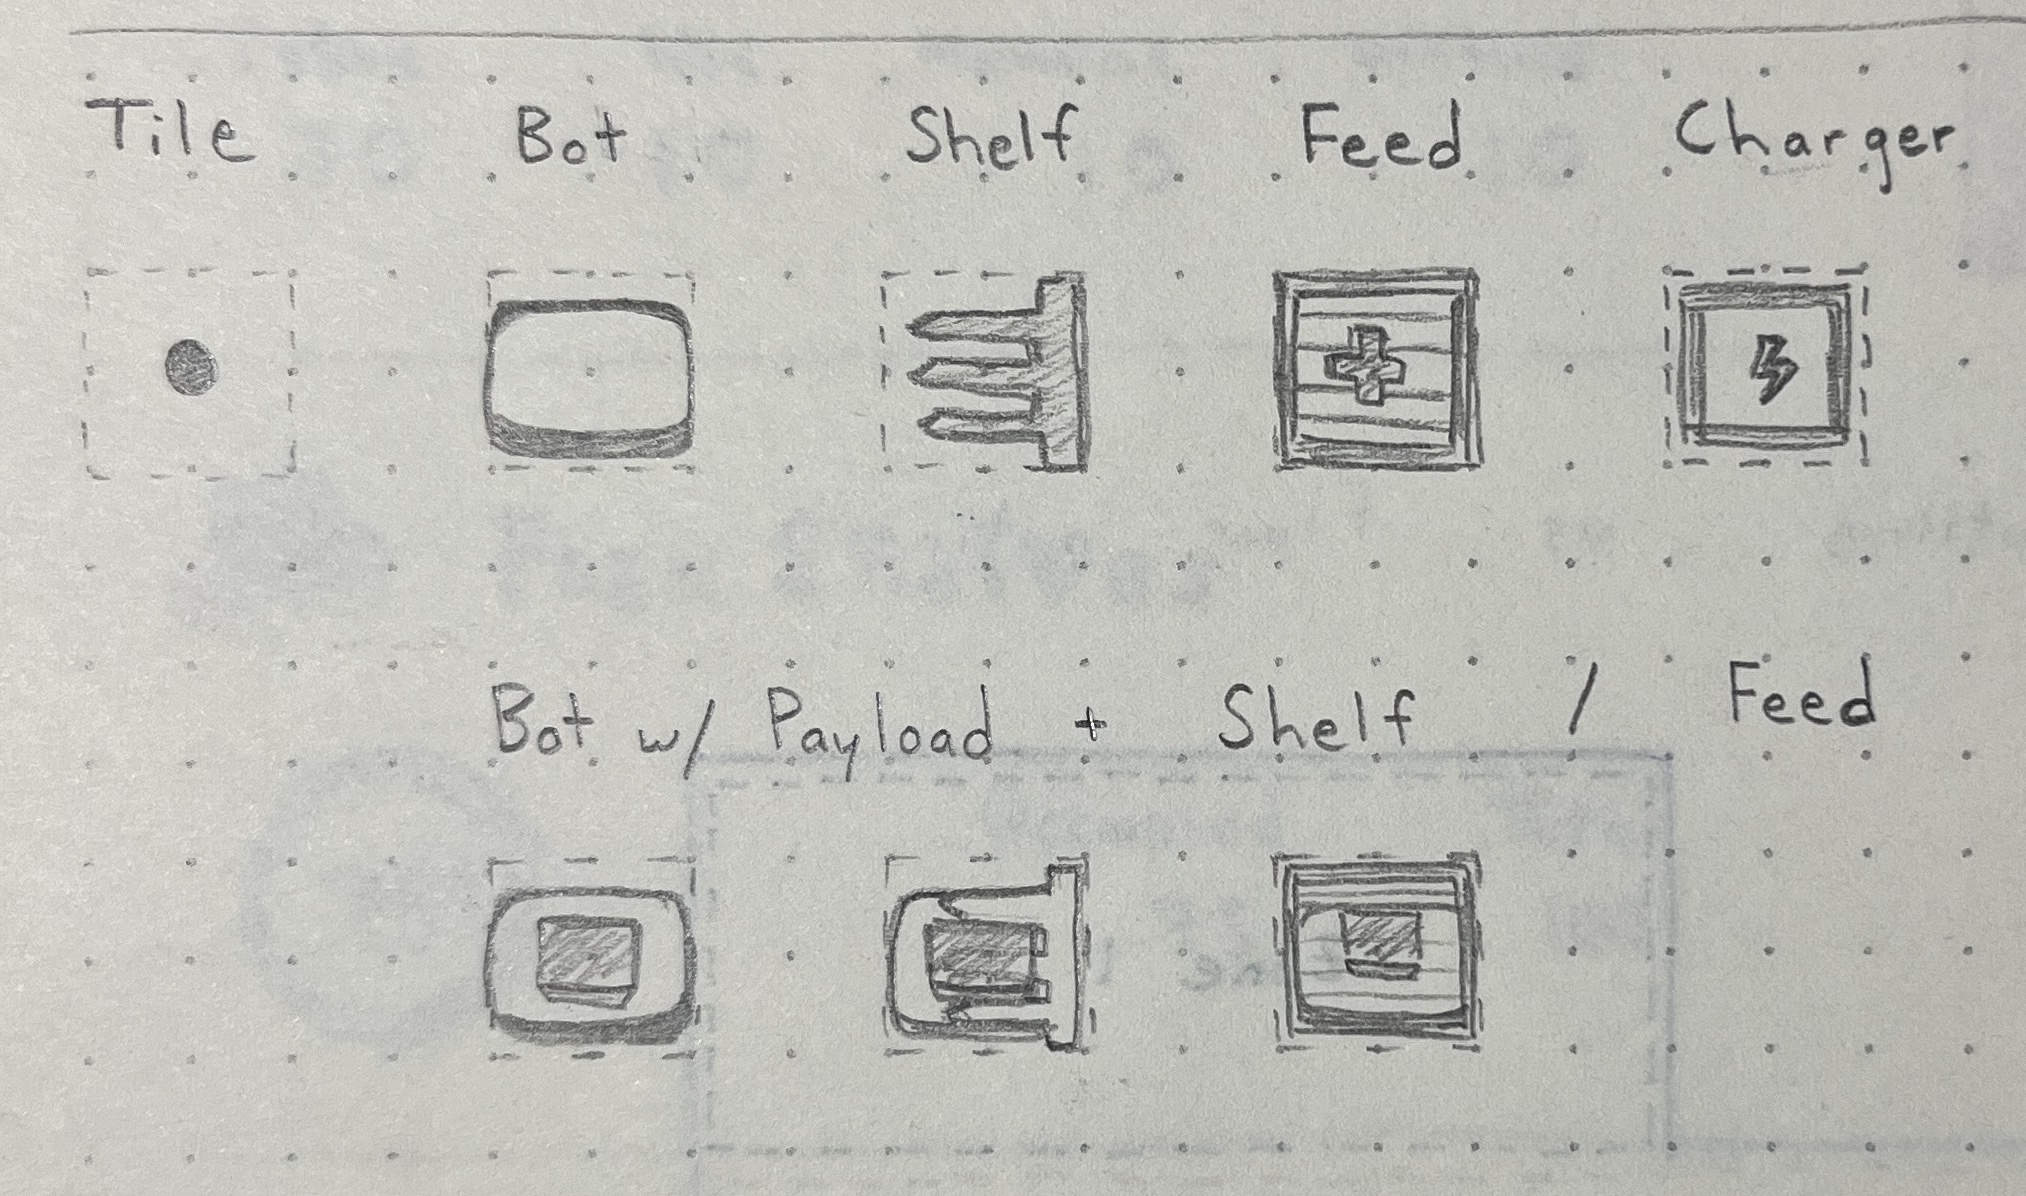 Tile Bot Shelf Feed Charger
Bot w/ Payload + Shelf / Feed